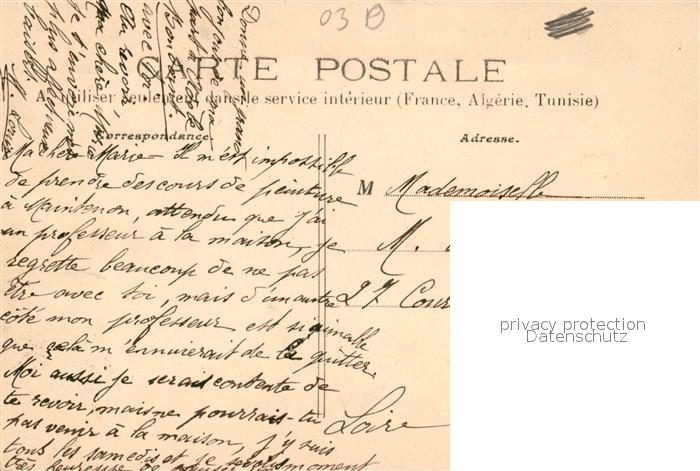 03 B
CARTE POSTALE
A utiliser seulement dans le service intérieur (France, Algérie, Tunisie)
Correspondance.
Adresse.
Ma chère Marie Il m'est impossible
de prendre des cours de peinture
à Maintenon, attendu que j'ai
un professeur à la maison, je
regrette beaucoup de ne pas
être avec toi, mais d'un autre
côté mon professeur est si aimable
que celà m'ennuierait de le quitter.
Moi aussi je serais contente de
te revoir, mais ne pourrais-tu
pas venir à la maison, j'y suis
tous les samedis et je serais
très heureuse de moment
M Mademoiselle
M.
27 Cour
Loire
privacy protection
Datenschutz
Donne un grand
bonjour de ma
part à
Bonheur
avec
Au revoir
ma chère
je t'envoie mes
plus affectueux
baisers